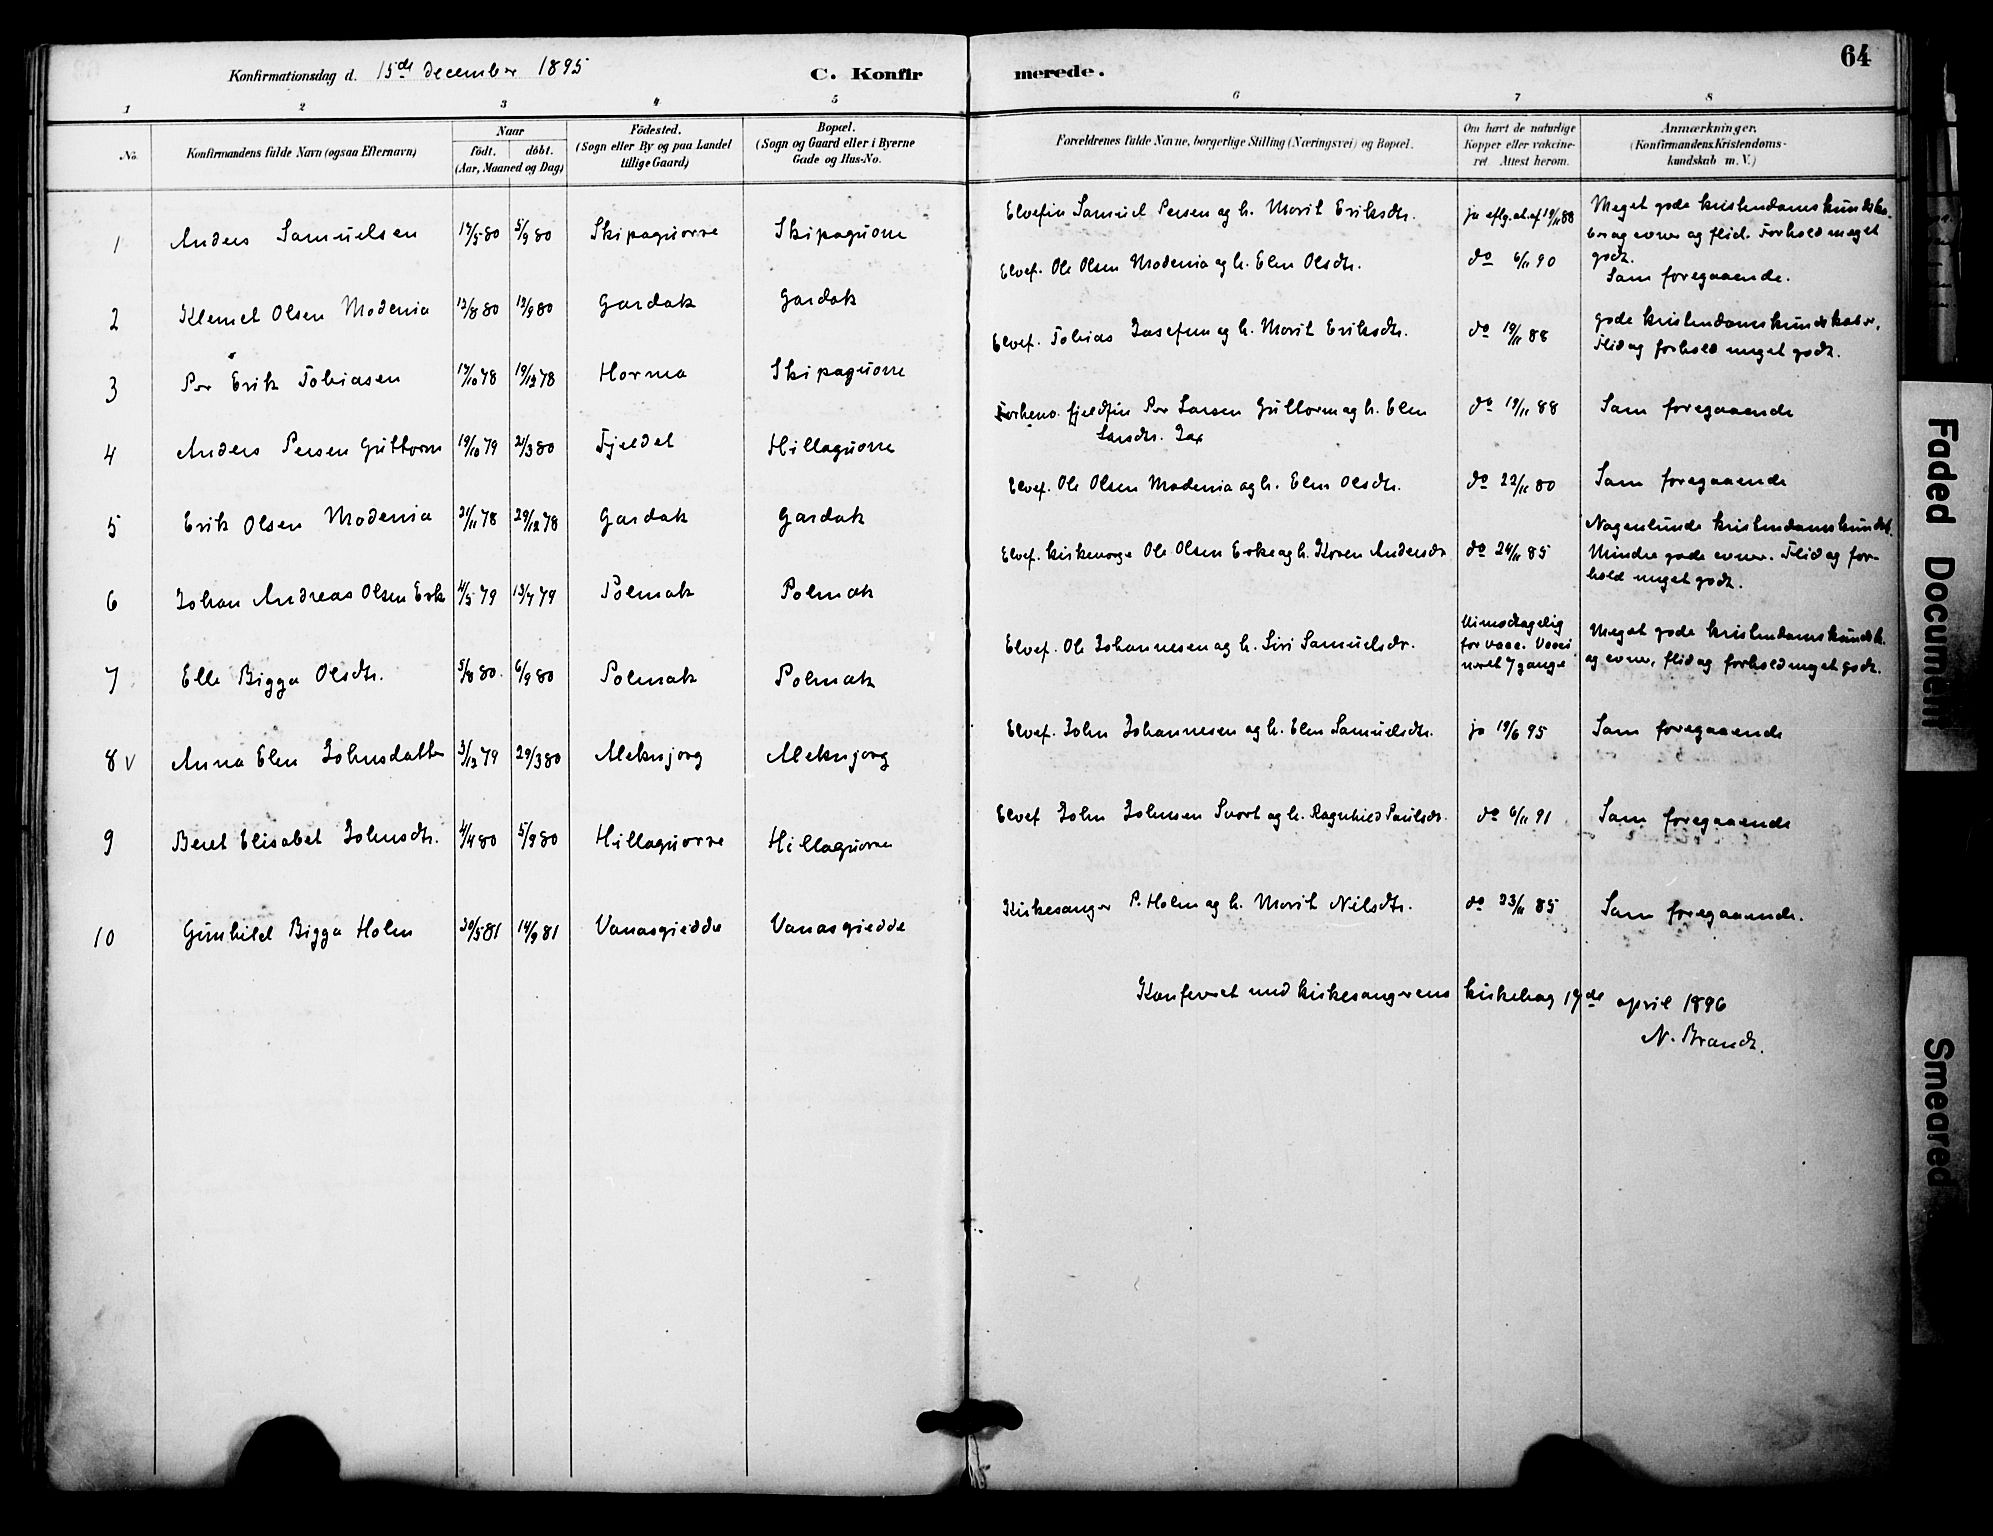 64
Konfirmationsdag d. 15de december 1895
C. Konfirmerede.
1 2 3 4 5 6 7 8
No.
Konfirmandens fulde Navn (ogsaa Efternavn)
Naar
födt. döbt.
(Aar, Maaned og Dag)
Födested.
(Sogn eller By og paa Landet
tillige Gaard)
Bopæl.
(Sogn og Gaard eller i Byerne
Gade og Hus-No.
Forældrenes fulde Navne, borgerlige Stilling (Næringsvei) og Bopæl.
Om havt de naturlige
Kopper eller vakcine-
ret. Attest herom.
Anmærkninger.
(Konfirmandens Kristendoms-
kundskab m. V.)
1 Anders Samuelsen 17/5 80 5/9 80 Skipaguorre Skipaguorre Elvefin Samuel Persen og h. Marit Eriksdtr. ja eflg. at. af 19/11 88 Meget gode kristendomskundska-
ber og evner og flid. Forhold meget
godt.
2 Klemet Olsen Modenia 13/8 80 19/9 80 Gardak Gardak Elvef. Ole Olsen Modenia og h. Elen Olsdtr. do 6/11 90 Som foregaaende.
3 Per Erik Tobiasen 17/10 78 19/12 78 Horma Skipaguorre Elvef. Tobias Josefsen og h. Marit Eriksdtr. do 19/11 88 gode kristendomskundskaber,
Flid og forhold meget godt.
4 Anders Persen Guttorm 19/10 79 21/3 80 Fjeldet Hillaguorre Forhenv. fjeldfin Per Larsen Guttorm og h. Elen
Larsdtr. do 19/11 88 Som foregaaende
5 Erik Olsen Modenia 21/11 78 29/12 78 Gardak Gardak Elvef. Ole Olsen Modenia og h. Elen Olsdtr. do 22/11 80 Som foregaaende
6 Johan Andreas Olsen Erke 4/5 79 13/7 79 Polmak Polmak Elvef. kirkeverge Ole Olsen Erke og h. Karen Andersdtr do 24/11 85 Nogenlunde kristendomskundsk.
Mindre gode evner. Flid og for-
hold meget godt.
7 Elle Bigga Olsdtr. 5/8 80. 6/9 80 Polmak Polmak Elvef. Ole Johannesen og h. Siri Samuelsdtr. Uimodtagelig
for vacc. Vacci
neret 7 gange Meget gode kristendomskundsk.
og evner, flid og forhold meget godt.
8 v Anna Elen Johnsdatter 3/12 79 29/3 80 Aleknjorg Aleknjorg Elvef. John Johannesen og h. Elen Samuelsdtr. ja 19/6 95 Som foregaaende
9 Beret Elisabet Johnsdtr. 4/4 80 5/9 80 Hillaguorre Hillaguorre Elvef John Johnsen Svart og h. Ragnhild Paulsdtr. do 6/11 91 Som foregaaende
10 Gunhild Bigga Holm 30/5 81 14/9 81 Vanasgiedde Vanasgiedde Kirkesanger P. Holm og h. Marit Nilsdtr. do 23/11 85 Som foregaaende.
Konfereret med kirkesangerens kirkebog 19de april 1896
N. Brandt.
Faded Document
Smeared